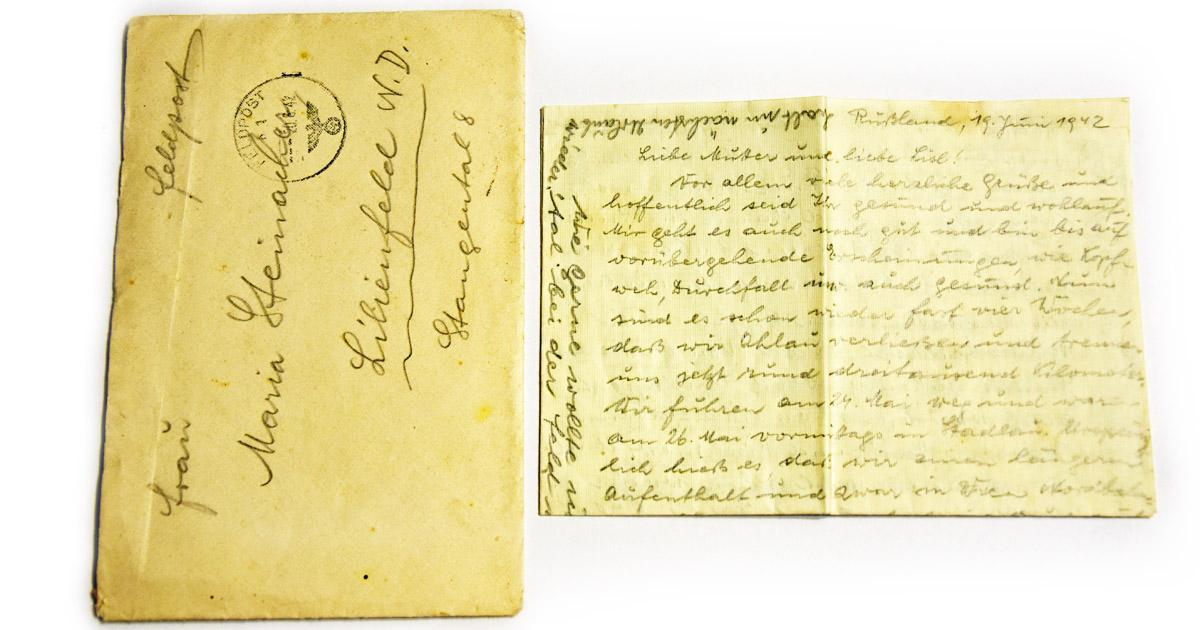 Feldpost
FELDPOST
Frau
Maria Steinmacher
Lilienfeld N.D.
Stangental 8
Rußland, 19. Juni 1942
Liebe Mutter und liebe Lisl!
Vor allem viele herzliche Grüße und
hoffentlich seid Ihr gesund und wohlauf.
Mir geht es auch noch gut und bin bis auf
vorübergehende Erscheinungen, wie Kopf-
weh, Durchfall usw. auch gesund. Nun
sind es schon wieder fast vier Wochen,
daß wir Ohlau verließen und trennen
uns jetzt rund dreitausend Kilometer.
Wir fuhren am 24. Mai weg und waren
am 26. Mai vormittags in Stadlau. Ursprüng
lich hieß es daß wir einen längeren
Aufenthalt und zwar in Wien
wie gerne wollte
wieder bei der
nächsten Urlaub